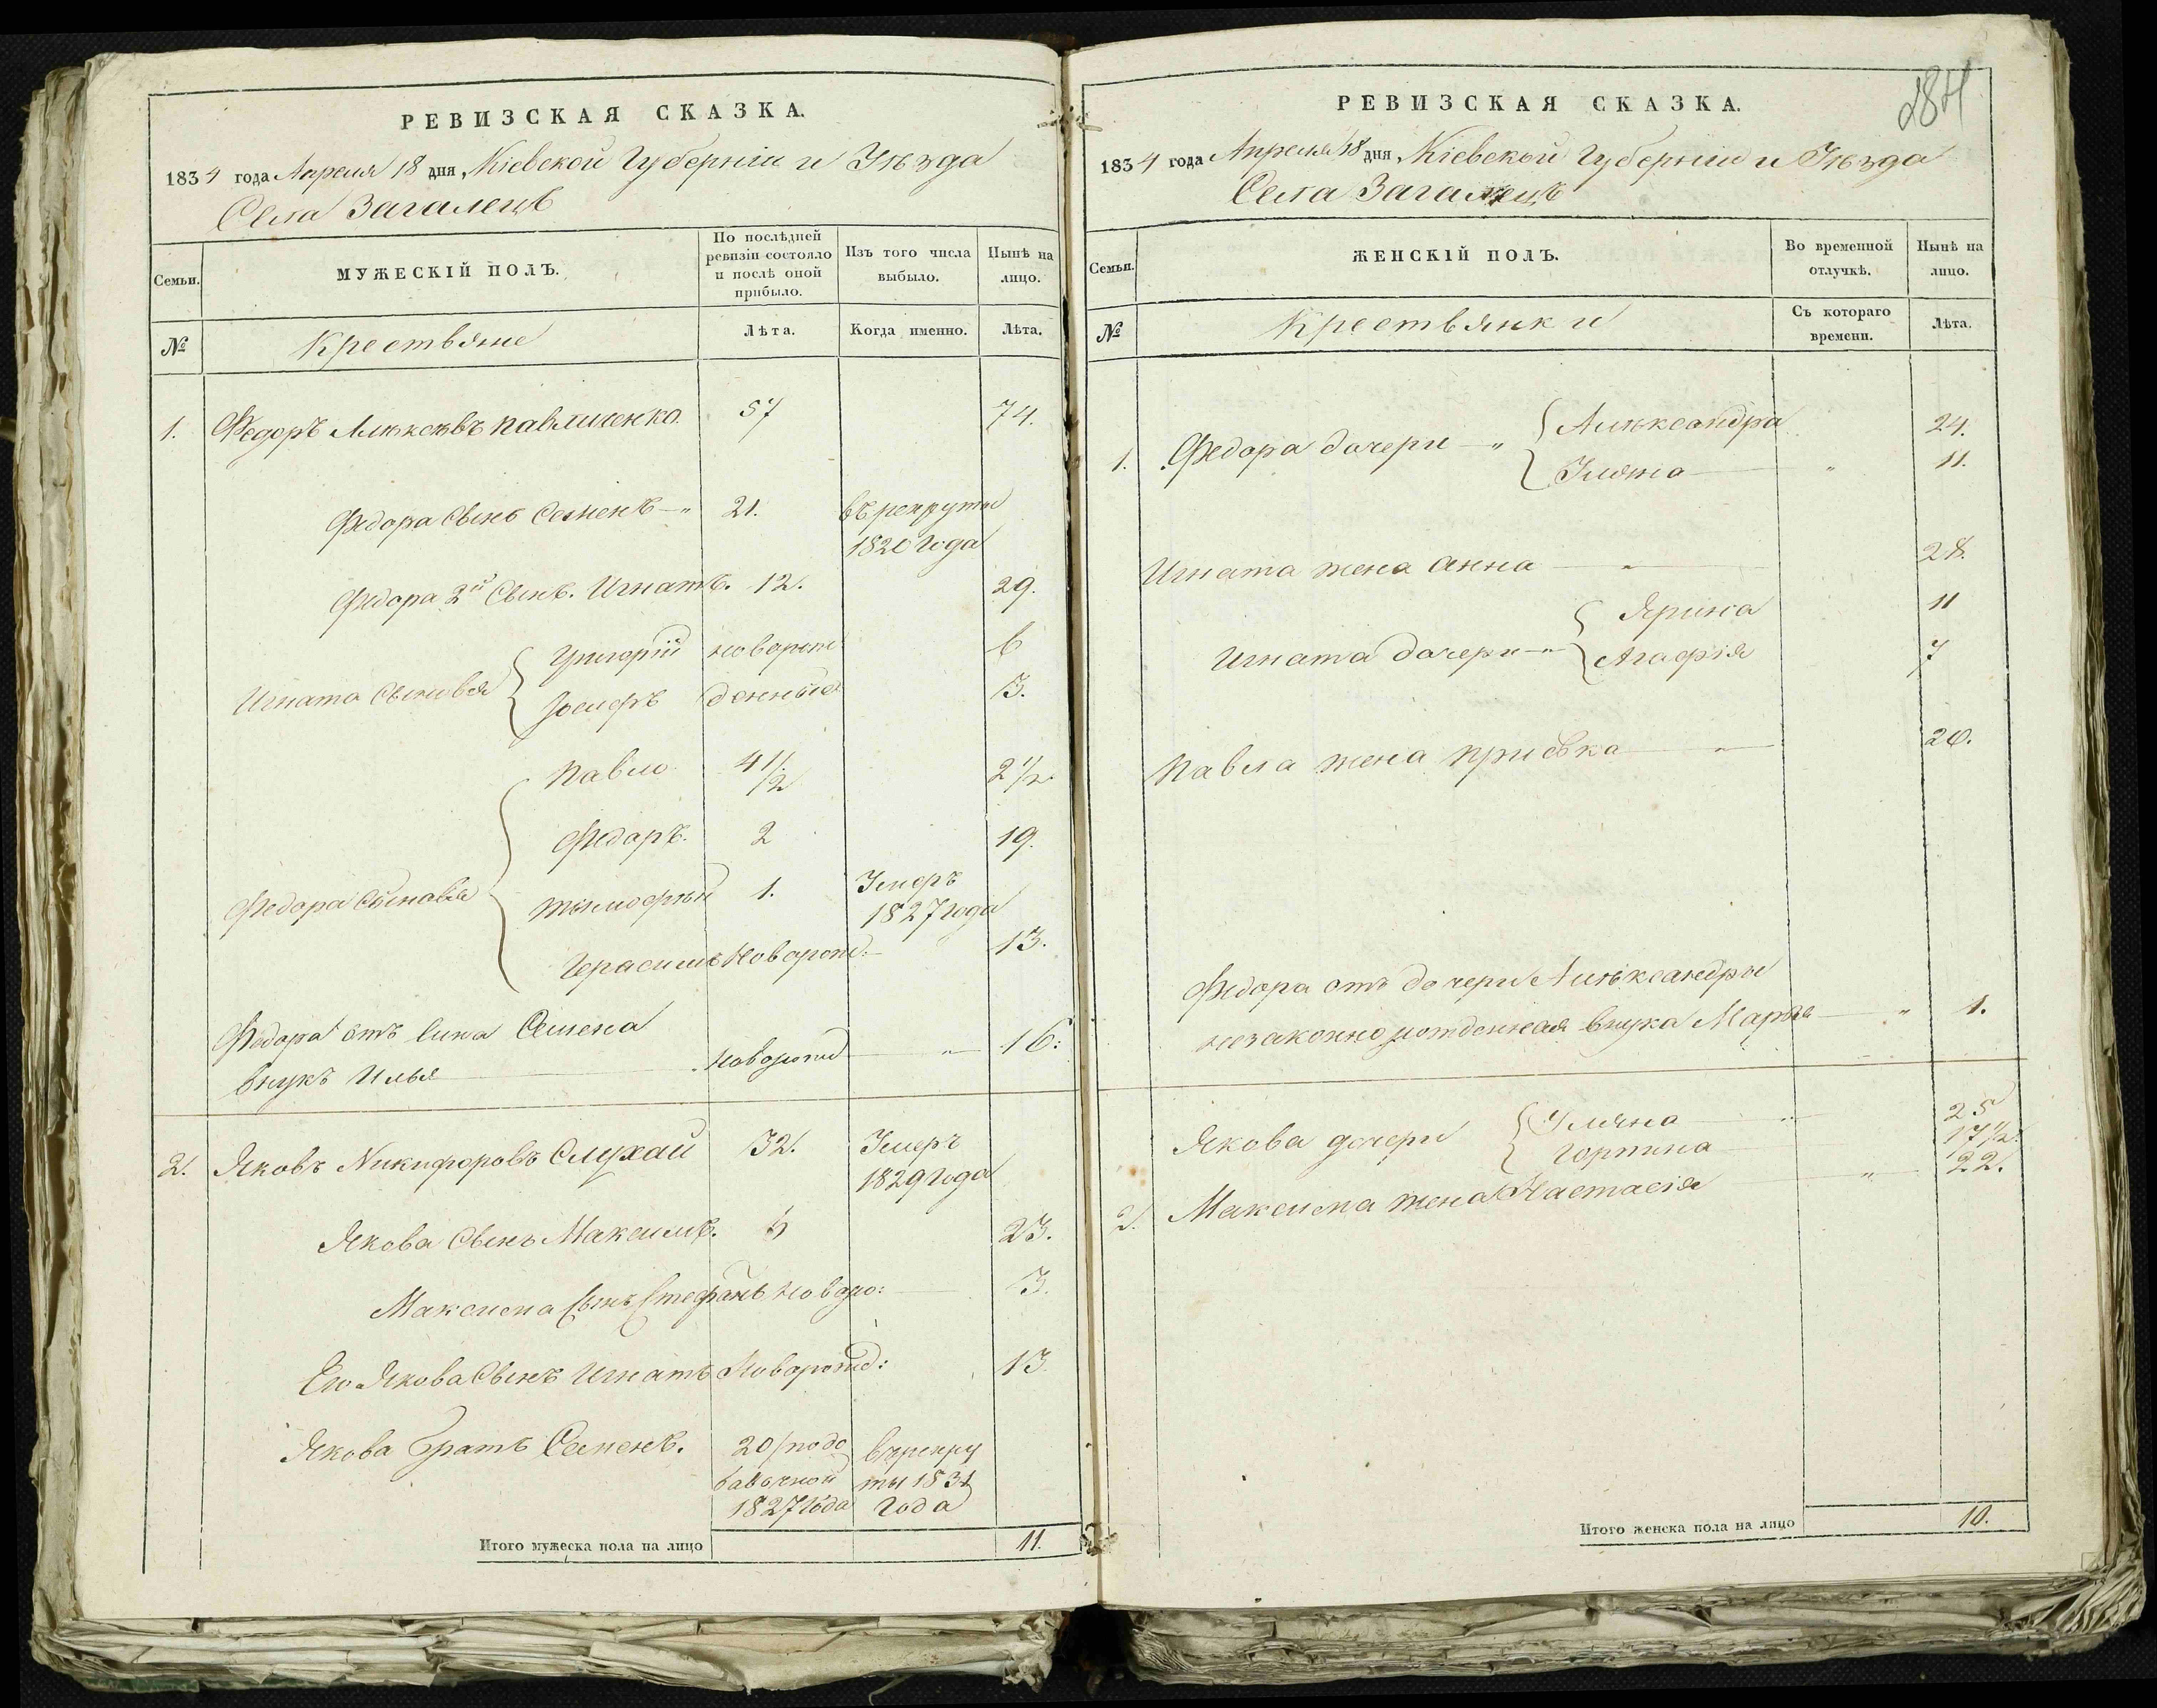 РЕВИЗСКАЯ СКАЗКА.
1834 года Апреля 18 дня, Кіевской Губерніи и Уѣзда
Села Загалецъ
Семьи.
МУЖЕСКІЙ ПОЛЪ.
По послѣдней
ревизіи состояло
и послѣ оной
прибыло.
Изъ того числа
выбыло.
Нынѣ на
лицо.
№
Крестьяне
Лѣта.
Когда именно.
Лѣта.
1. Федоръ Алѣксѣвъ Павличенко 57 74.
Федора Сынъ Семенъ—„ 21. въ рекруты
1820 Года
Федора 2й Сынъ. Игнатъ. 12. 29.
Игната Сыновья
Григорій новорож 6
Іосифъ денныя 3.
Федора Сыновья
Павло 4 1/2 2 1/2
Федоръ. 2 19.
Тимофѣй 1. Умеръ
1827 года
Герасимъ Новорож:— 13.
Федора отъ сина Семена
внукъ Илья новорожд — „ — 16:
2. Яковъ Никифоровъ Слухай 32. Умеръ
1829 Года
Якова Сынъ Максимъ. 23.
Максима Сынъ Стефанъ новоро: 3.
Его Якова Сынъ Игнатъ Новорожд: 13
Якова Братъ Семенъ. 20/по до въ рекру
бавочной ты 1831
1827 Года Года
Итого мужеска пола на лицо 11.
284
РЕВИЗСКАЯ СКАЗКА.
1834 года Апреля 18 дня, Кіевской Губерніи и Уѣзда
Села Загалецъ
Семьи.
ЖЕНСКІЙ ПОЛЪ.
Во временной
отлучкѣ.
Нынѣ на
лицо.
№
Крестьянки
Съ котораго
времени.
Лѣта.
1. Федора дочери — „
Алѣксандра 24.
Уляна — „ 11.
Игната жена Анна — „ — 28.
Игната дочери — „
Ярина 11
Агафія 7
Павла жена Приська — „ — 20.
Федора отъ дочери Алѣксандры
незаконнорожденная внука Марья — „ 1.
Якова дочери
Уляна — „ 25
Горпина 17 1/2.
2. Максима жена Настасія — „ — 22.
Итого женска пола на лицо 10.